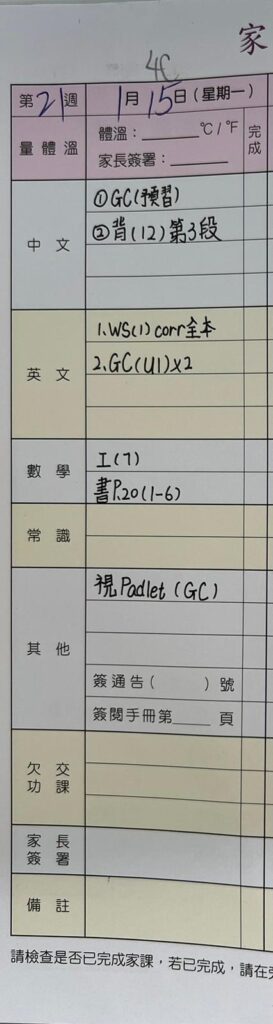 家
4C
第21週 1月15日(星期一)
量體溫 體溫:______ °C/°F 完成
家長簽署:______
中文
①GC(預習)
②背(12)第3段
英文
1.WS(1) corr全本
2.GC(U1)x2
數學
工(7)
書P.20(1-6)
常識
其他
視Padlet (GC)
簽通告( )號
簽閱手冊第____頁
欠交功課
家長簽署
備註
請檢查是否已完成家課,若已完成,請在